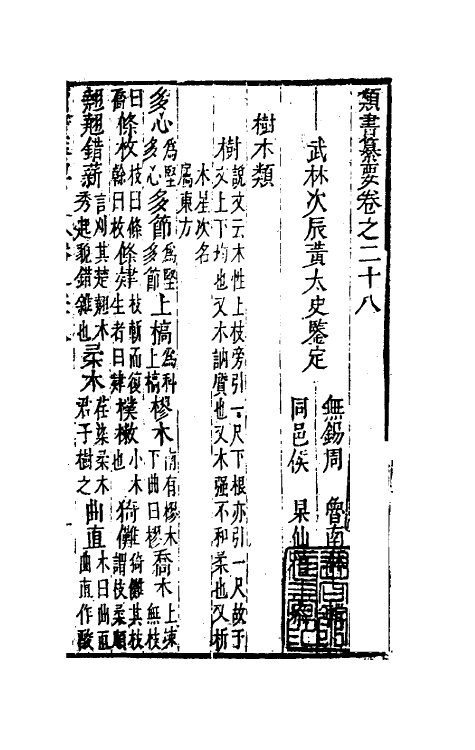 類書纂要卷之二十八
武林次辰黃太史鑒定
無錫周　魯南
同邑侯　杲仙
樹木類
樹說文云木性上枝旁引一尺下根亦引一尺故于
文上下均也又木訥質也又木强不和柔也又析
木星次名
屬東方
多心爲堅多心多節爲堅多節上槁爲科上槁樛木南有樛木下曲曰樛喬木上竦無枝
曰喬條枚枝曰條榦曰枚條肄枝斬而復生者曰肄樸樕小木也猗儺猗儺其枝謂枝柔順
翹翹錯薪言刈其楚翹木秀起貌錯雜也柔木荏染柔木君子樹之曲直木曰曲直曲直作酸